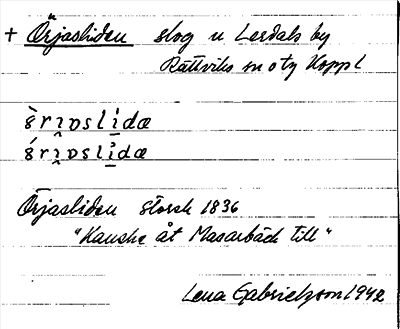 + Örjasliden skog u Lerdals by
Rättviks sn o tg Koppl
ɞ̀rı̯ɒslı̇̀dæ
ɞ́rı̯ɒslı̇̀dæ
Örjasliden storsk 1836
"Kanske åt Masarbäck till"
Lena Gabrielsson 1942